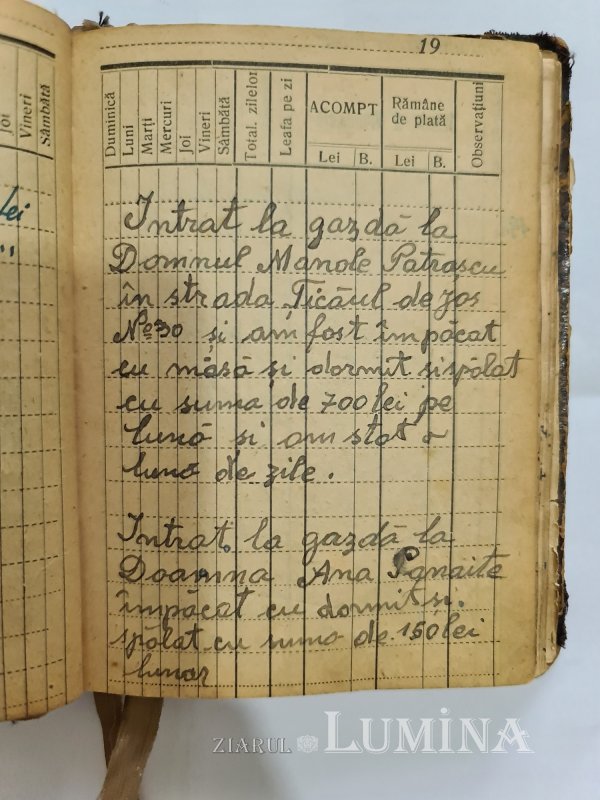 joi
Vineri
Sâmbătă
lei
19
Duminică
Luni
Marți
Mercuri
Joi
Vineri
Sâmbătă
Total. zilelor
Leafa pe zi
ACOMPT
Rămâne de plată
Observațiuni
Lei B. Lei B.
Intrat la gazdă la
Domnul Manole Patrașcu
în strada Țicăul de jos
No 30 și am fost împăcat
cu măsă și dormit si spălat
cu suma de 700 lei pe
lună si am stat o
luna de zile.
Intrat la gazdă la
Doamna Ana Panaite
împăcat cu dormit și
spălat cu suma de 150 lei
lunar
ZIARUL LUMINA